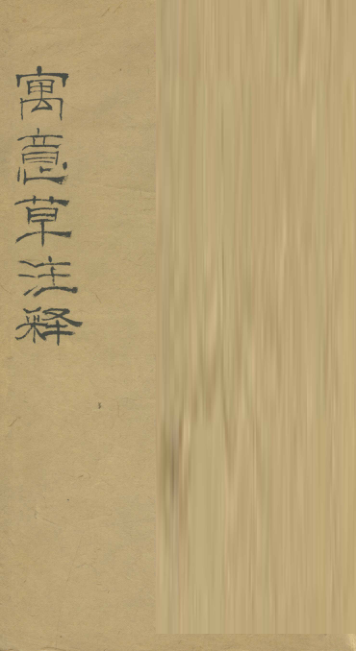 寓意草注释